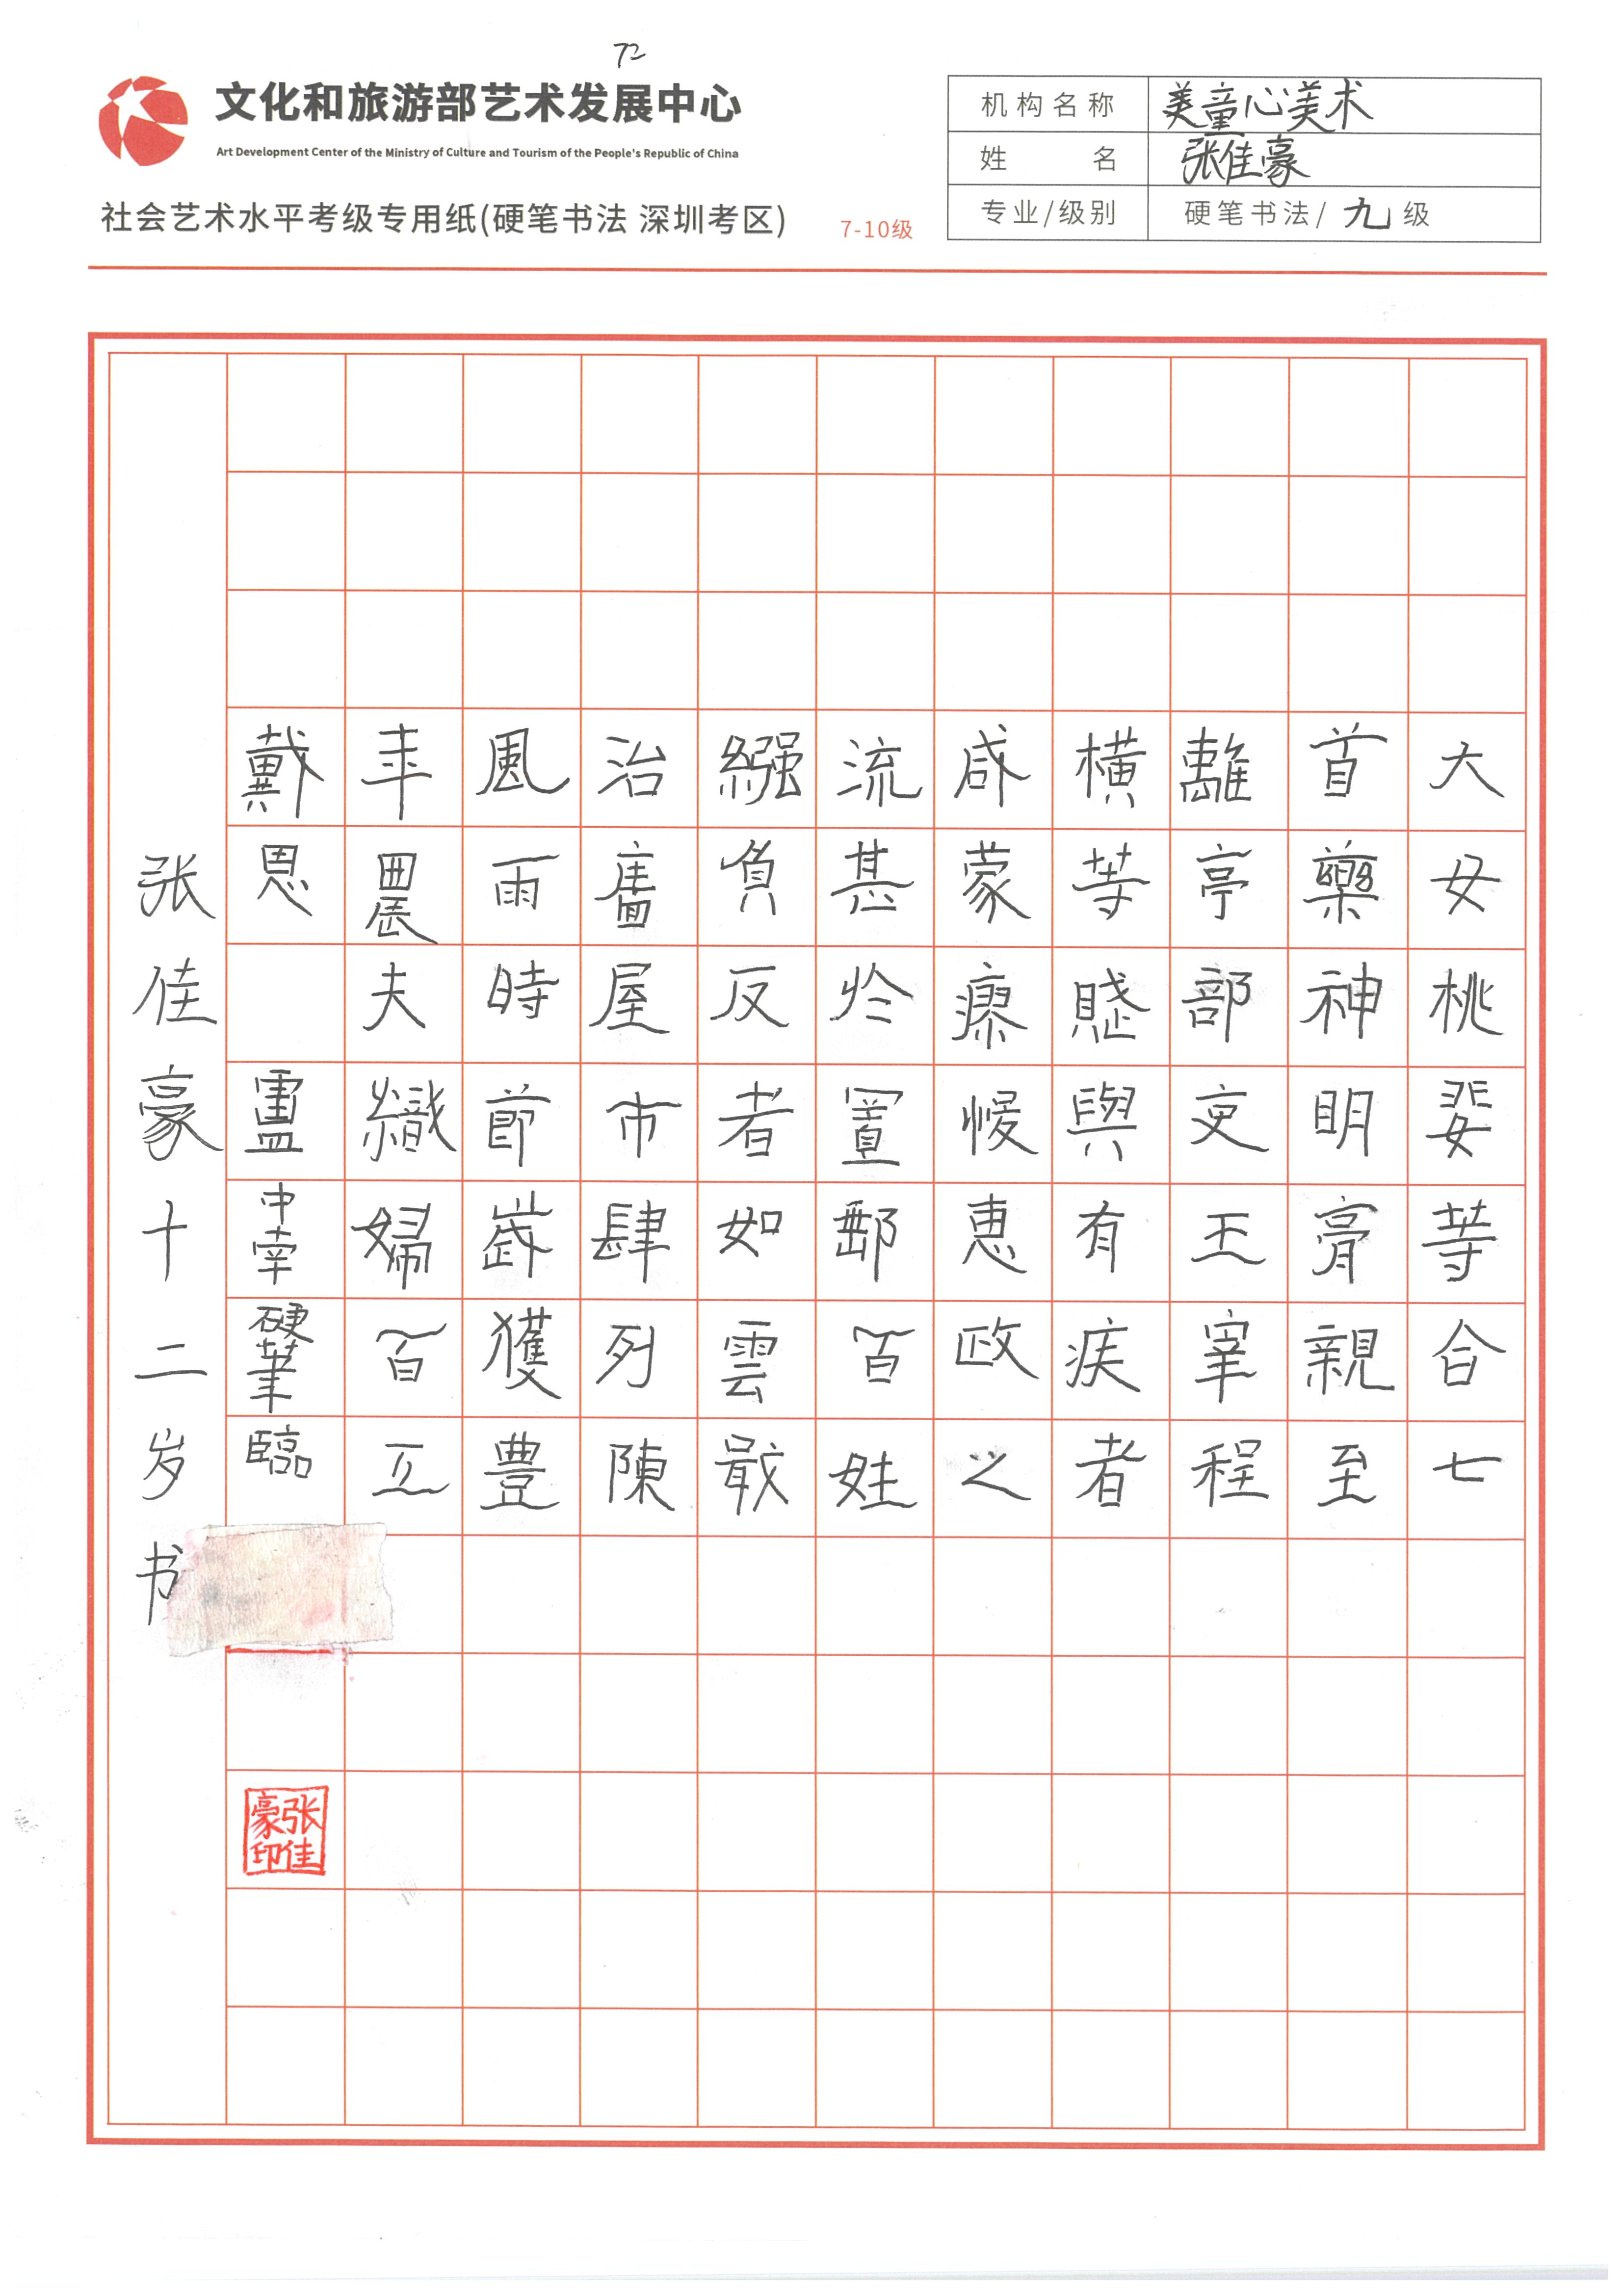 72
文化和旅游部艺术发展中心
Art Development Center of the Ministry of Culture and Tourism of the People's Republic of China
社会艺术水平考级专用纸(硬笔书法 深圳考区)
7-10级
机构名称 美童心美术
姓名 张佳豪
专业/级别 硬笔书法/九级
大女桃婓等合七
首藥神明膏親至
離亭部吏王宰程
橫等賦與有疾者
咸蒙瘳悛惠政之
流甚於置郵百姓
繦負反者如雲戢
治廧屋市肆列陳
風雨時節歲獲豐
年農夫織婦百工
戴恩 硬筆臨
张佳豪十二岁书
张佳豪印